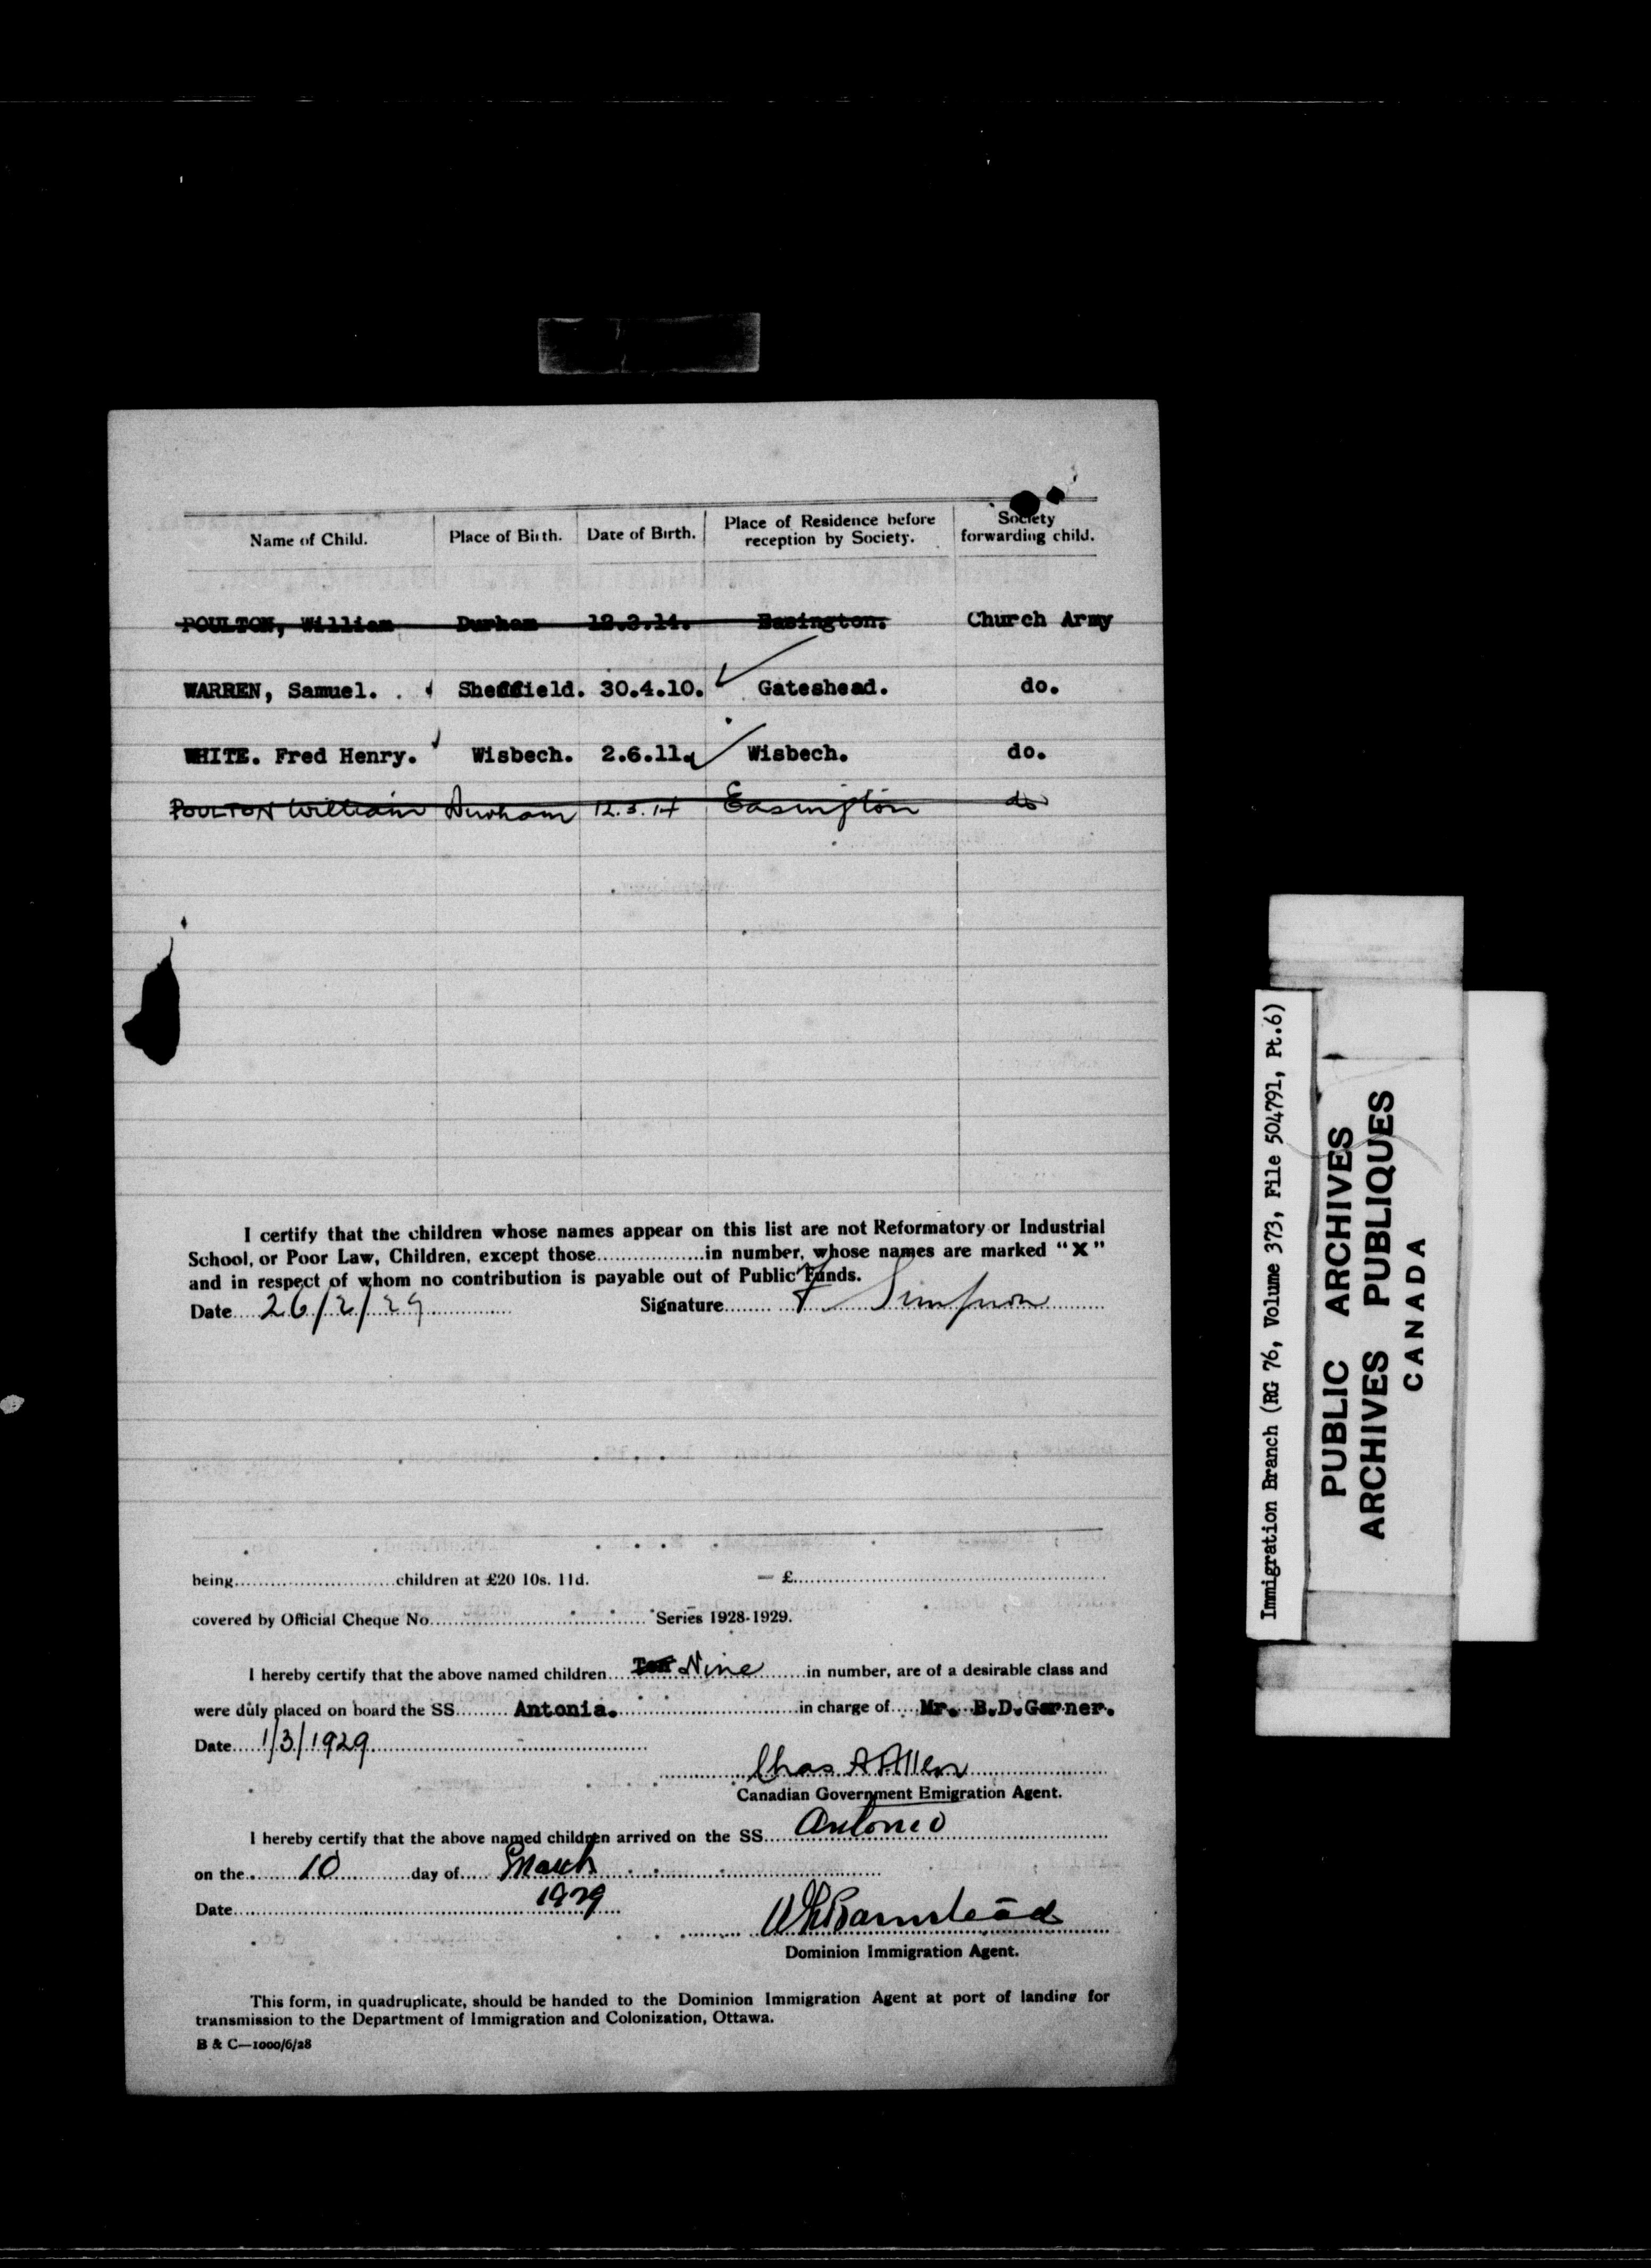 Name of Child. Place of Birth. Date of Birth. Place of Residence before reception by Society. Society forwarding child.
POULTON, William Durham 12.3.14. Easington. Church Army
WARREN, Samuel. Sheffield. 30.4.10. Gateshead. do.
WHITE. Fred Henry. Wisbech. 2.6.11. Wisbech. do.
POULTON William Durham 12.3.14 Easington do
I certify that the children whose names appear on this list are not Reformatory or Industrial
School, or Poor Law, Children, except those..................in number, whose names are marked "X"
and in respect of whom no contribution is payable out of Public Funds.
Date 26/2/29 Signature F Simpson
being children at £20 10s. 11d. — £
covered by Official Cheque No. Series 1928-1929.
I hereby certify that the above named children Ten Nine in number, are of a desirable class and
were duly placed on board the SS Antonia. in charge of Mr. B.D.Garner.
Date 1/3/1929
Chas A Allen
Canadian Government Emigration Agent.
I hereby certify that the above named children arrived on the SS Antonio
on the 10 day of March
Date 1929
Dominion Immigration Agent.
This form, in quadruplicate, should be handed to the Dominion Immigration Agent at port of landing for
transmission to the Department of Immigration and Colonization, Ottawa.
B & C—1000/6/28
Immigration Branch (RG 76, Volume 373, File 504791, Pt.6)
PUBLIC ARCHIVES
ARCHIVES PUBLIQUES
CANADA